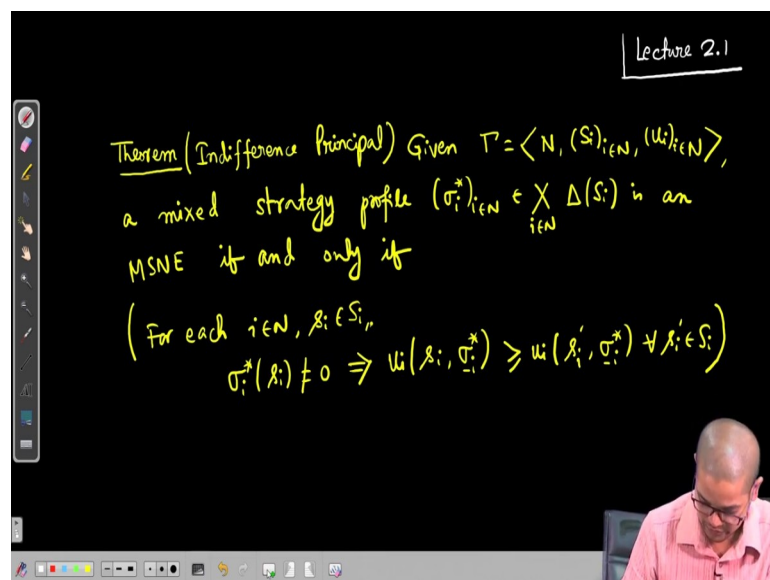 Lecture 2.1
Theorem (Indifference Principal) Given Γ = ⟨N, (Si)i∈N, (Ui)i∈N⟩,
a mixed strategy profile (σi*)i∈N ∈ X i∈N Δ(Si) is an
MSNE if and only if
(For each i∈N, si∈Si,
σi*(si) ≠ 0 ⇒ ui(si, σ-i*) ≥ ui(si', σ-i*) ∀ si'∈Si)